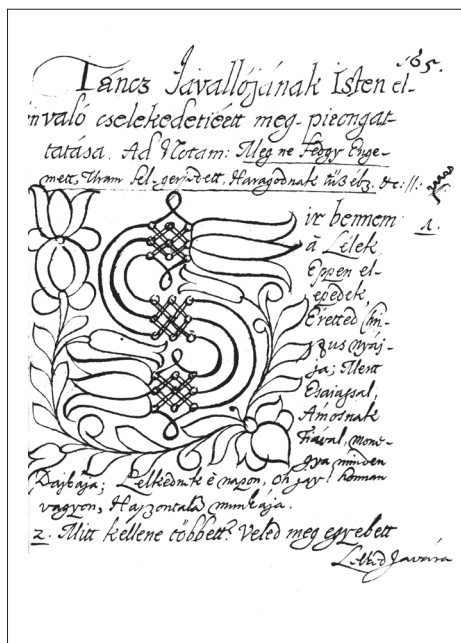 165.
Táncz Javallójának Isten el-
való cselekedetiért meg-pirongat-
tatása. Ad Notam: Meg ne feddgy Enge-
mett, Uram fel-gerjedett, Haragodnak
1.
Sir bennem
à Lélek
Eppen el-
epedek,
Eretted
nyáj-
ja; Ment
Esaiassal,
Amosnak
Fiával, mond-
gya minden
Dajkája; Lelkednek è napon, Oh jay! honnan
vagyon, Haszontalan munkája.
2. Mitt kellene többett? Veled meg egyebett
Lelked Javára